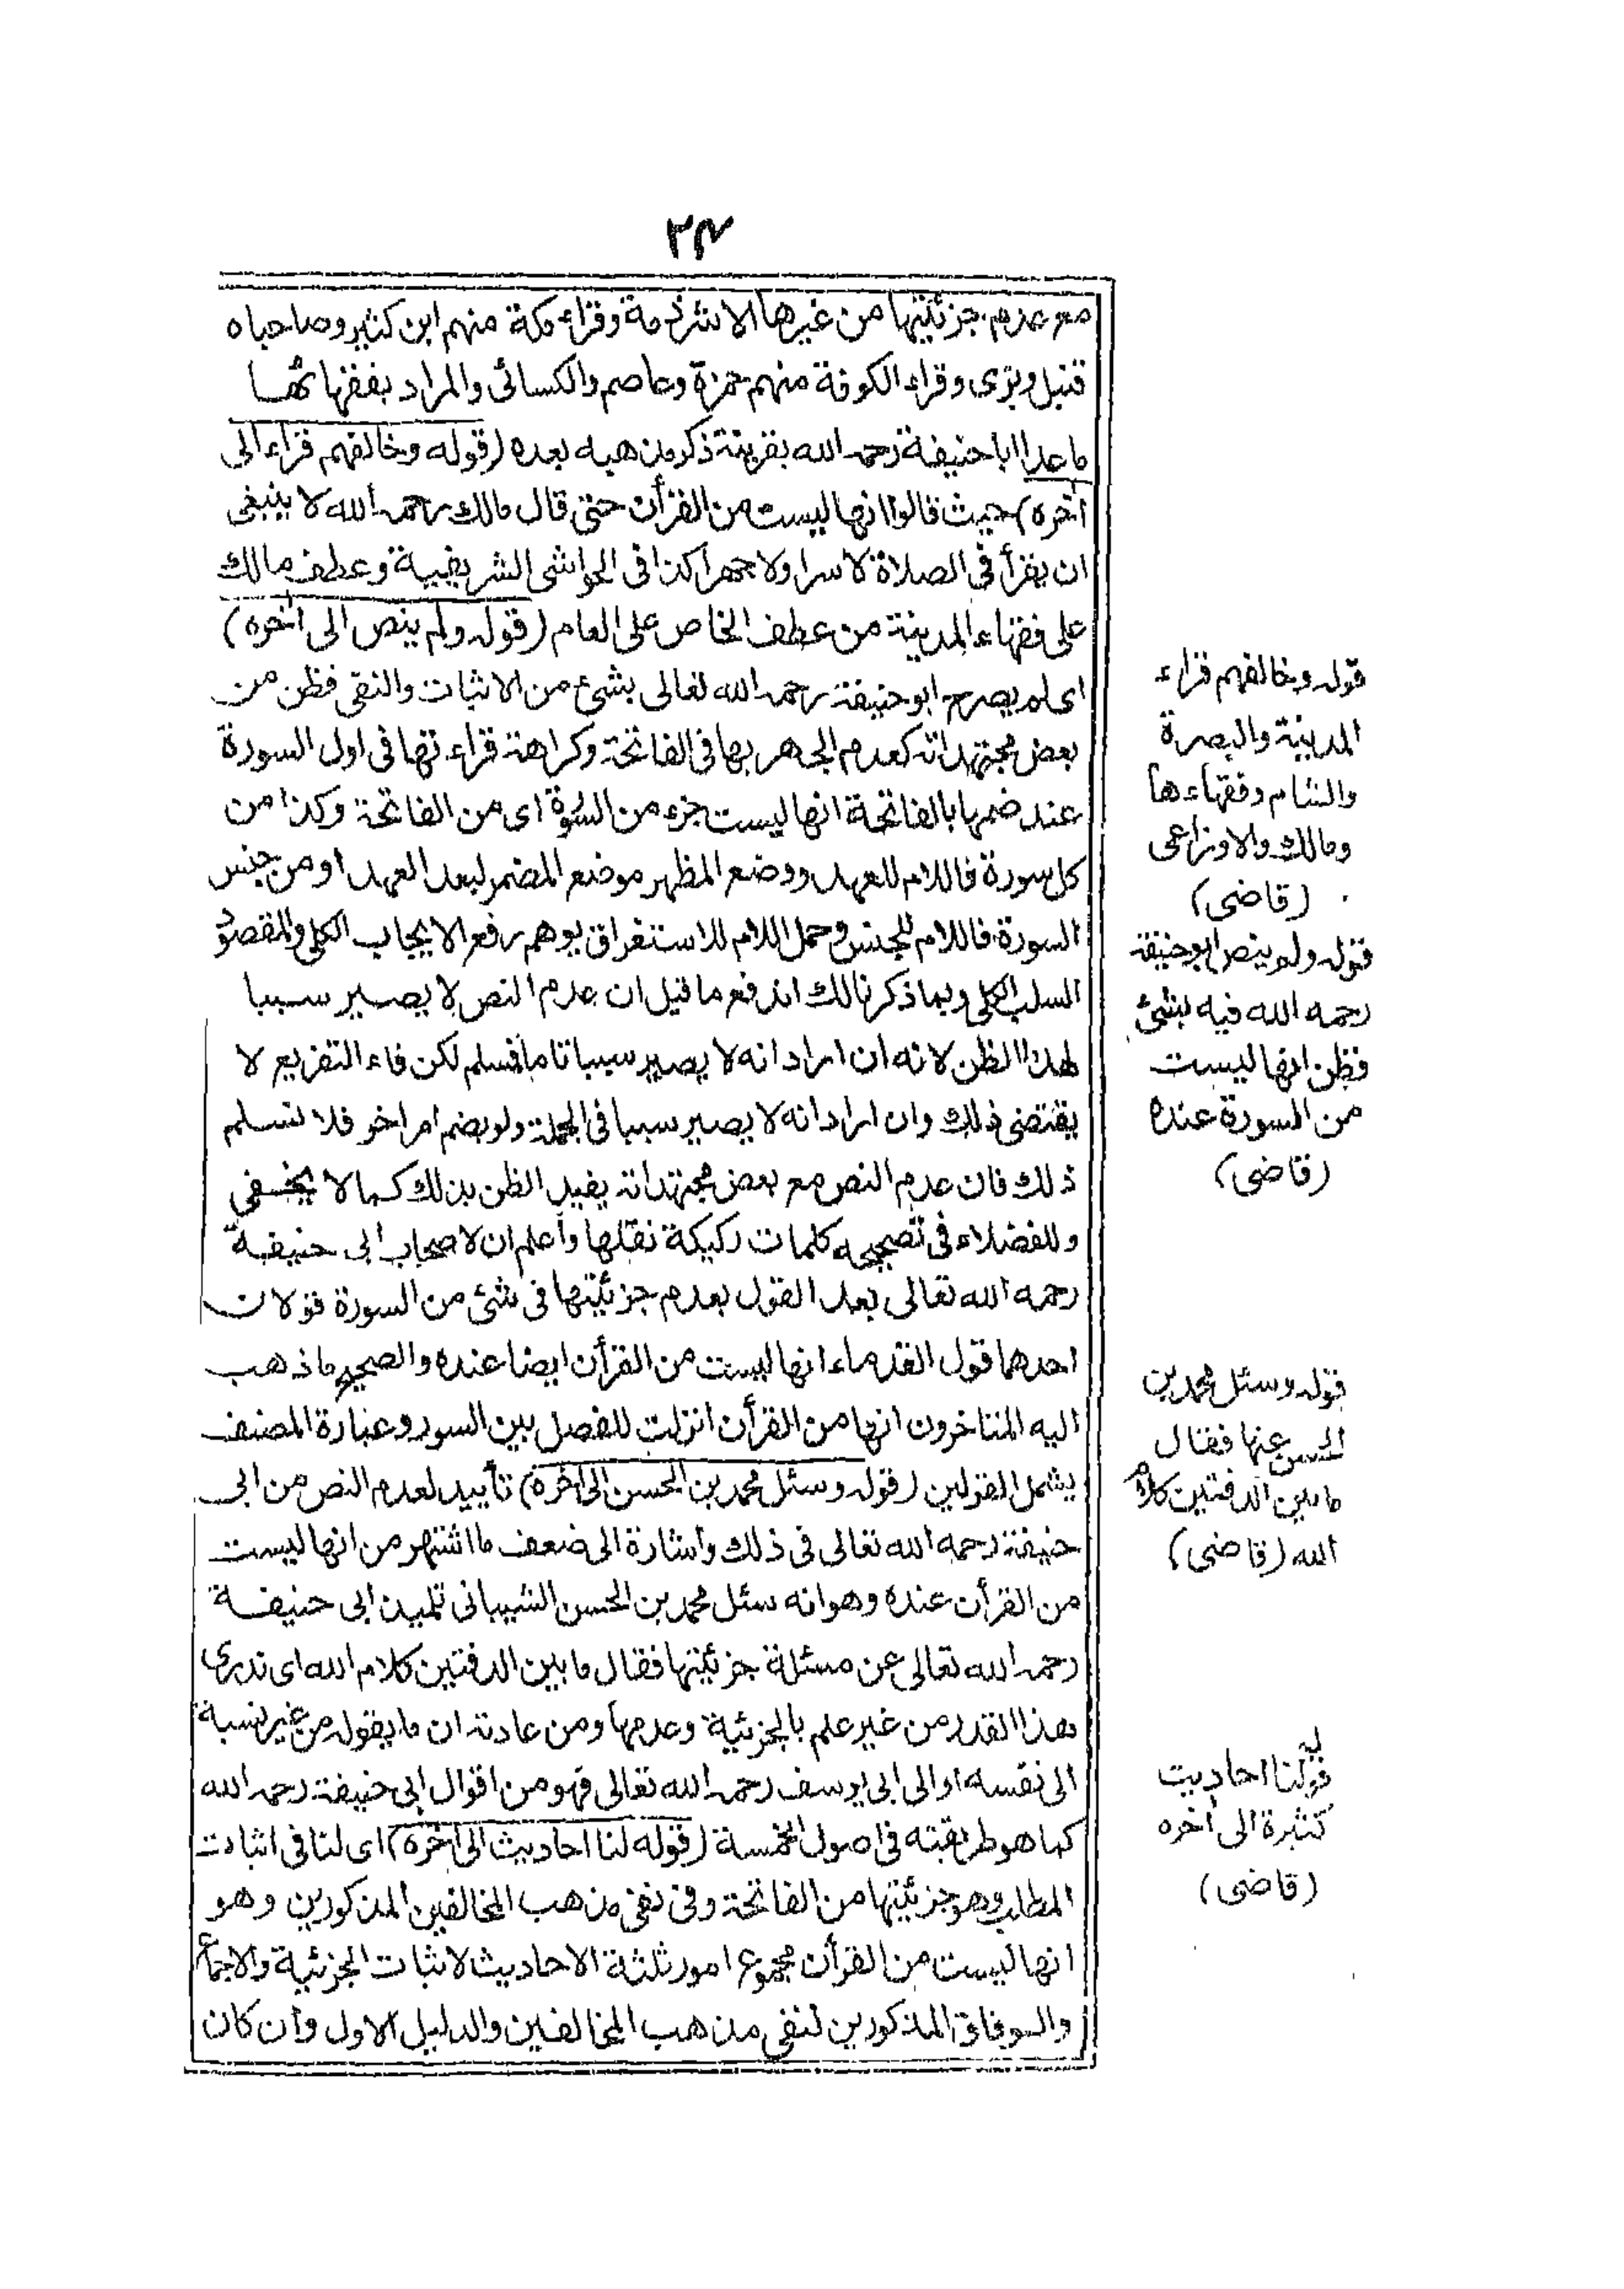 ٢٣
مع عدم جزئيتها من غيرها الا شرذمة وقراء مكة منهم ابن كثير وصاحباه
قنبل وبزى وقراء الكوفة منهم حمزة وعاصم والكسائى والمراد بفقهائهما
ما عدا ابا حنيفة رحمه الله بقرينة ذكر مذهبه بعده (قوله وخالفهم قراء الى
آخره) حيث قالوا انها ليست من القرأن حتى قال مالك رحمه الله لا ينبغى
ان يقرأ فى الصلاة لا سرا ولا جهرا كذا فى الحواشى الشريفية وعطف مالك
على فقهاء المدينة من عطف الخاص على العام (قوله ولم ينص الى آخره)
اى لم يصرح ابو حنيفة رحمه الله تعالى بشئ من الاثبات والنفى فظن من
بعض مجتهداته كعدم الجهر بها فى الفاتحة وكراهة قراءتها فى اول السورة
عند ضمها بالفاتحة انها ليست جزء من السورة اى من الفاتحة وكذا من
كل سورة فاللام للعهد ووضع المظهر موضع المضمر لبعد العهد او من جنس
السورة فاللام للجنس وحمل اللام للاستغراق يوهم رفع الايجاب الكلى والمقصود
السلب الكلى وبما ذكرنا لك اندفع ما قيل ان عدم النص لا يصير سببا
لهذا الظن لانه ان اراد انه لا يصير سببا تاما فسلم لكن فاء التفريع لا
يقتضى ذلك وان اراد انه لا يصير سببا فى الجملة ولو بضم امر اخر فلا نسلم
ذلك فان عدم النص مع بعض مجتهداته يفيد الظن بذلك كما لا يخفى
وللفضلاء فى تصحيحه كلمات ركيكة نقلها واعلم ان لاصحاب ابى حنيفة
رحمه الله تعالى بعد القول بعدم جزئيتها فى شئ من السورة قولان
احدهما قول القدماء انها ليست من القرأن ايضا عنده والصحيح ما ذهب
اليه المتاخرون انها من القرأن انزلت للفصل بين السور وعبارة المصنف
يشمل القولين (قوله وسئل محمد بن الحسن الى آخره) تأييد لعدم النص من ابى
حنيفة رحمه الله تعالى فى ذلك واشارة الى ضعف ما اشتهر من انها ليست
من القرأن عنده وهو انه سئل محمد بن الحسن الشيبانى تلميذ ابى حنيفة
رحمه الله تعالى عن مسئلة جزئيتها فقال ما بين الدفتين كلام الله اى ندرى
هذا القدر من غير علم بالجزئية وعدمها ومن عادته ان ما يقوله من غير نسبة
الى نفسه او الى ابى يوسف رحمه الله تعالى فهو من اقوال ابى حنيفة رحمه الله
كما هو طريقته فى اصول الخمسة (قوله لنا احاديث الى آخره) اى لنا فى اثبات
المطلب وهو جزئيتها من الفاتحة وفى نفى مذهب المخالفين المذكورين وهو
انها ليست من القرأن مجموع امور ثلثة الاحاديث لاثبات الجزئية والاجماع
والوفاق المذكورين لنفى مذهب المخالفين والدليل الاول وان كان
قوله وخالفهم قراء
المدينة والبصرة
والشام وفقهاءها
ومالك والاوزاعى
(قاضى)
قوله ولم ينص ابو حنيفة
رحمه الله فيه بشئ
فظن انها ليست
من السورة عنده
(قاضى)
قوله وسئل محمد بن
الحسن عنها فقال
ما بين الدفتين كلام
الله (قاضى)
قوله لنا احاديث
كثيرة الى آخره
(قاضى)